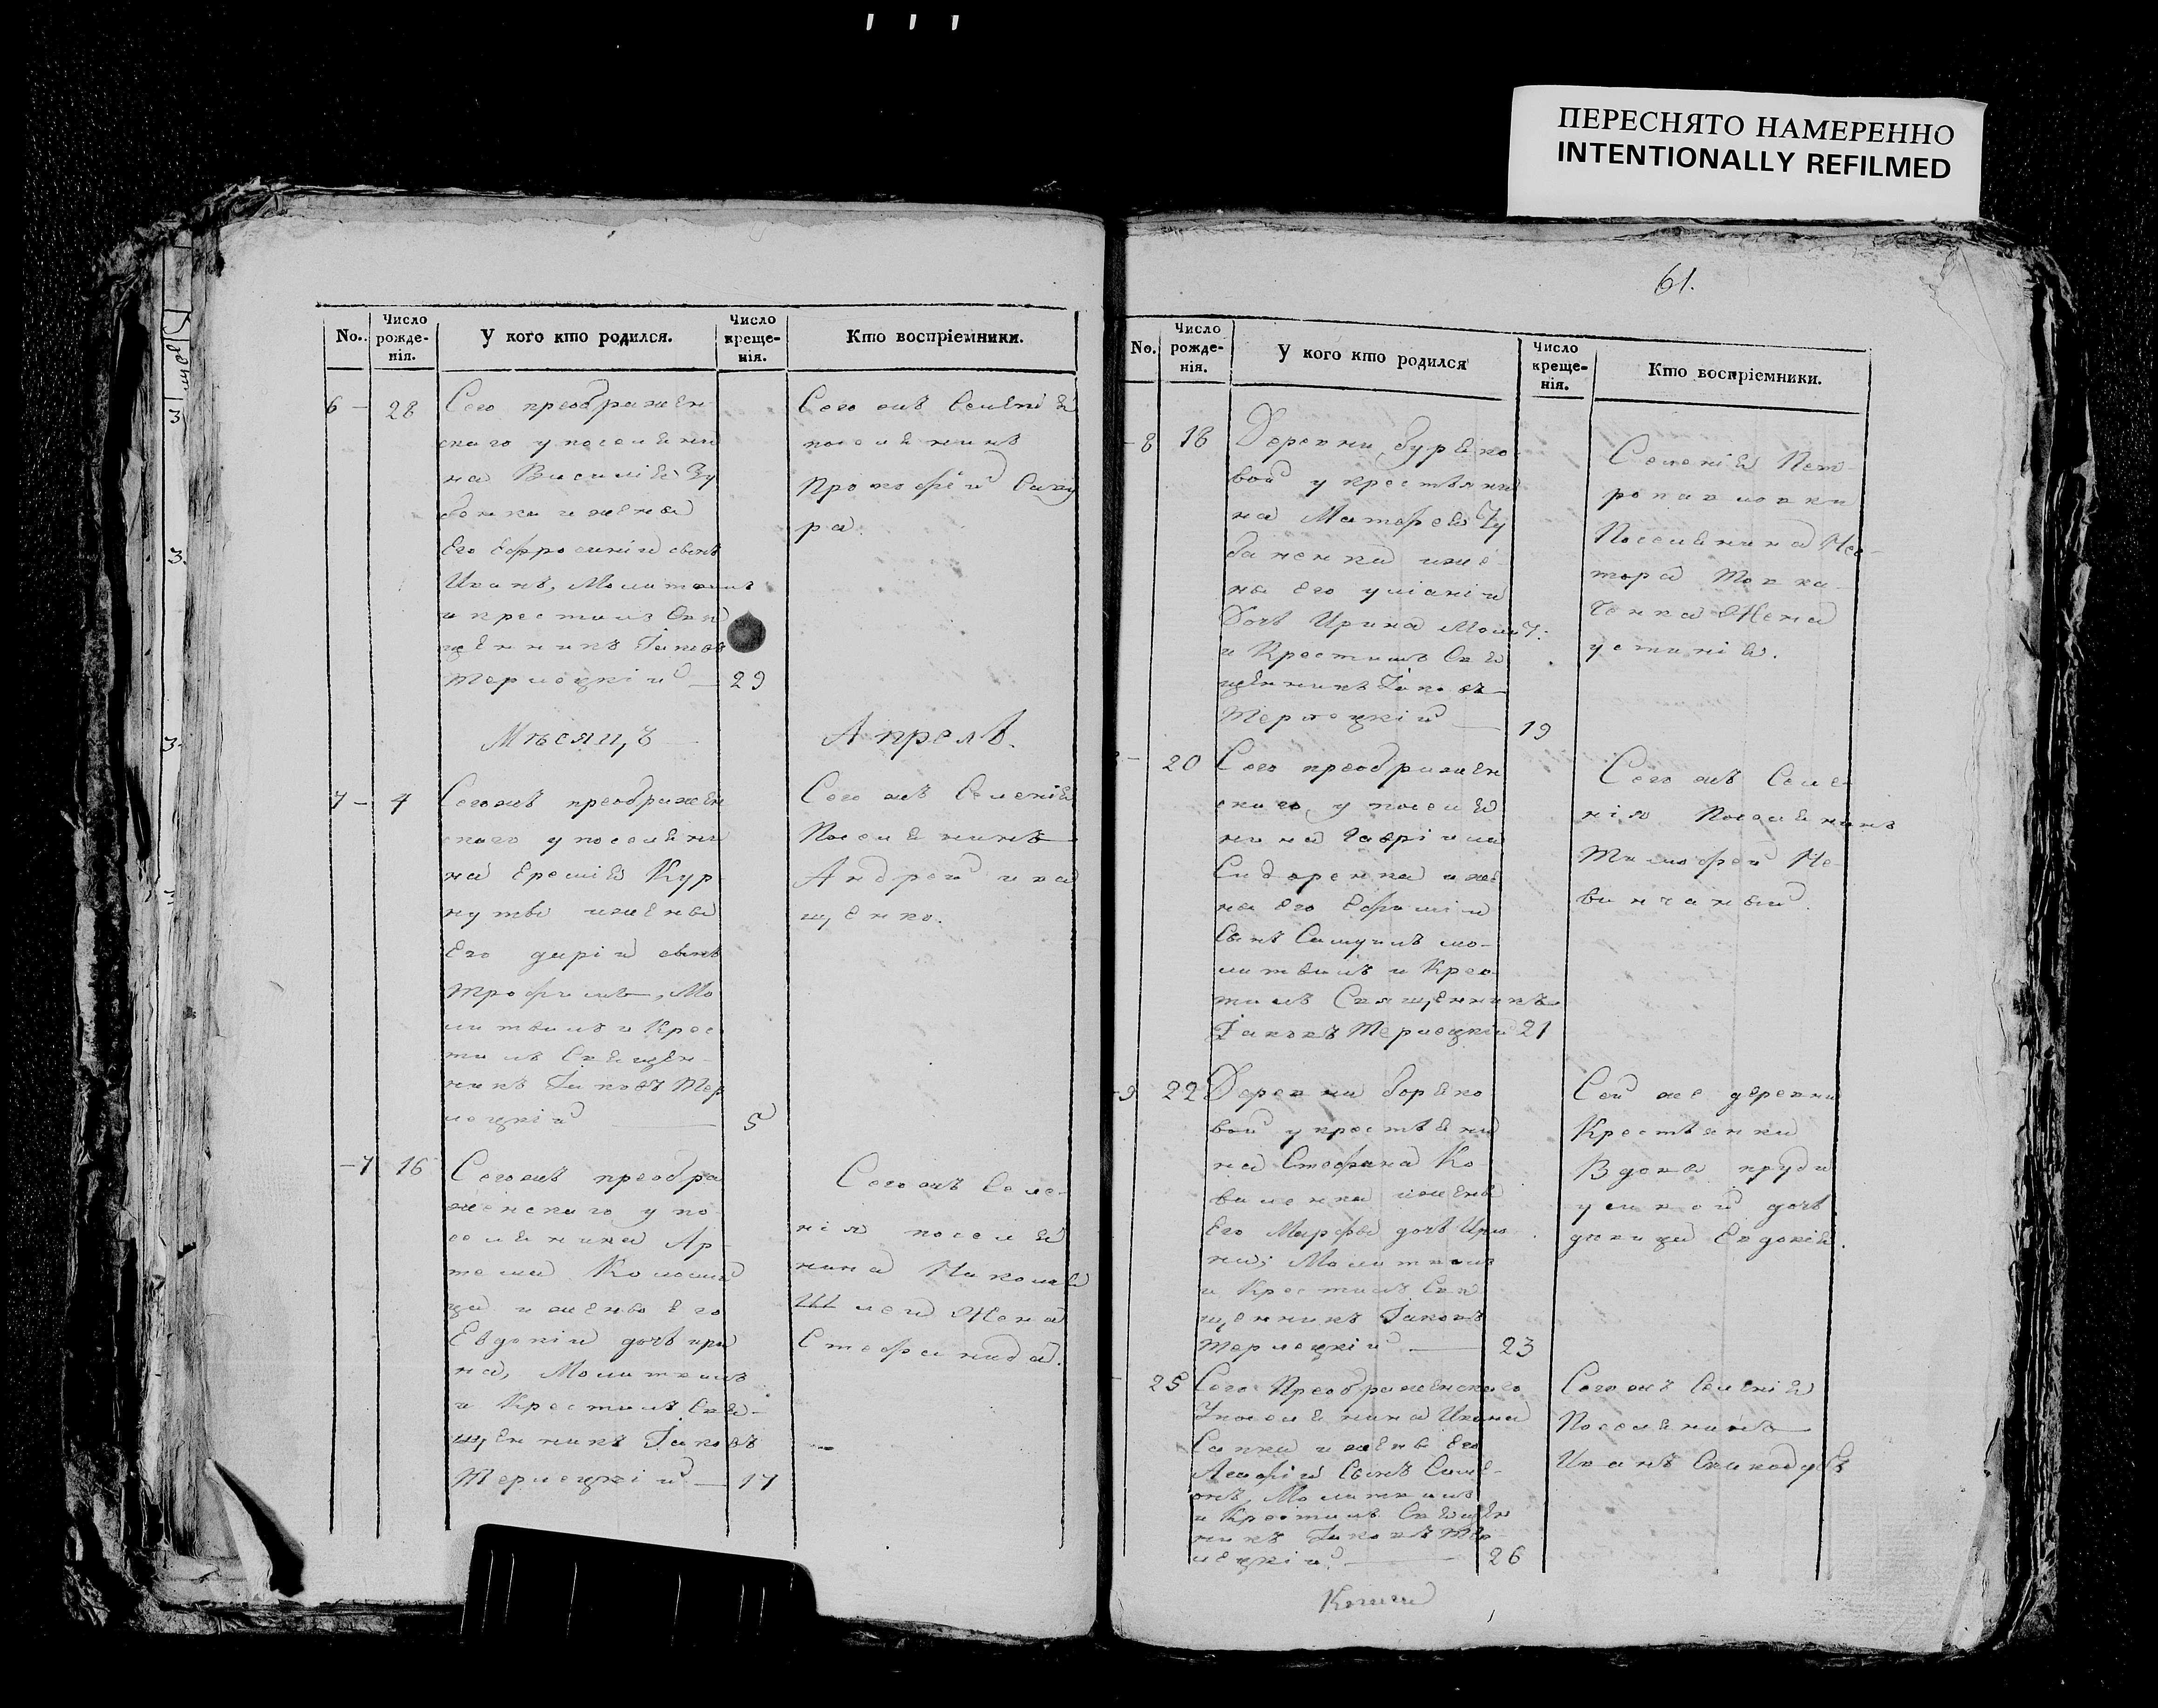 ПЕРЕСНЯТО НАМЕРЕННО
INTENTIONALLY REFILMED
No.
Число рожде-нія.
У кого кто родился.
Число креще-нія.
Кто воспріемники.
6 — 28
Сего преображен
скаго у поселяни
на Василія Зу
бенка и жены
Его Ефросиніи сынъ
Иванъ, Молитвилъ
и крестилъ Свя
щенникъ Іаковъ
Терлецкій — 29
Сего жъ Селенія
поселянинъ
Прокофій
ра.
Мѣсяцъ Апрель.
7 — 4
Сегожъ преображен
скаго у поселяни
на Еремѣя Кур
и жены
Его даріи сынъ
Трофимъ, Мо
литвилъ и Крес
тилъ Священ
никъ Іаковъ Тер
лецкій — 5
Сего жъ Селенія
Поселянинъ
Андрей Ива
щенко.
— 7 16
Сегожъ преобра
женскаго у по
селянина Ар
тема Коломій
ца и жены Его
Евдокіи дочь Ири
на, Молитвилъ
и Крестилъ Свя
щенникъ Іаковъ
Терлецкій — 17
Сегожъ Селе
нія поселя
нина Николая
Шлеи Жена
Стефанида.
61.
No.
Число рожде-нія.
У кого кто родился
Число креще-нія.
Кто воспріемники.
— 8 18
Деревни
вой у крестьяни
на Матфея Чу
баненка и же
ны Его уліаніи
Дочь Ирина Молит:
и Крестилъ Свя
щенникъ Іаковъ
Терлецкій — 19
Селенія Пет
ропавловки
Поселянина Нес
тора Товка
ченка Жена
устинія.
20
Сего преображен
скаго, у поселя
нина Гавріила
Сидоренка и же
ны Его Ефиміи
Сынъ Самуилъ мо-
литвилъ и Крес
тилъ Священникъ
Іаковъ Терлецкій 21
Сего жъ Селе
нія Поселянинъ
Тимофей Не
винчаный.
— 9 22
Деревни
вой у крестьяни
на Стефана Ко
валенка и жены
Его Марфы дочь Ири
на, Молитвилъ
и Крестилъ Свя
щенникъ Іаковъ
Терлецкій — 23
Сей же деревни
Крестьянки
Вдовы
дочь
дѣвица Евдокія.
25
Сего Преображенскаго
У поселянина Ивана
Сапки и жены Его
Агафіи Сынъ Симе-
онъ, Молитвилъ
и Крестилъ Священ
никъ Іаковъ Тер
лецкій — 26
Сегожъ Селенія
Поселянинъ
Иванъ